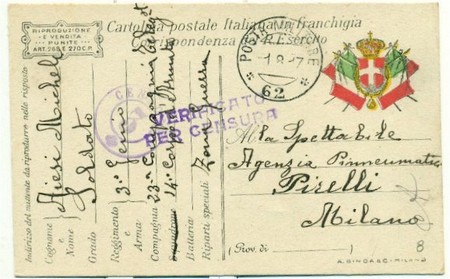 RIPRODUZIONE
E VENDITA
PUNITE
ART. 285 E 270 C.P.
Cartolina postale Italiana in franchigia
Corrispondenza R. Esercito
POSTA MILITARE
1.8.17
62
VERIFICATO
PER CENSURA
Indirizzo del mittente da riprodurre nelle risposte
Cognome e Nome Michele
Grado Soldato
Reggimento e Arma 3° Genio
Compagnia 23ª Compagnia
Squadrone 14° Corpo
Batteria
Riparti speciali Zona Guerra
Alla Spettabile
Agenzia Pinneumatici
Pirelli
Milano
(Prov. di )
8